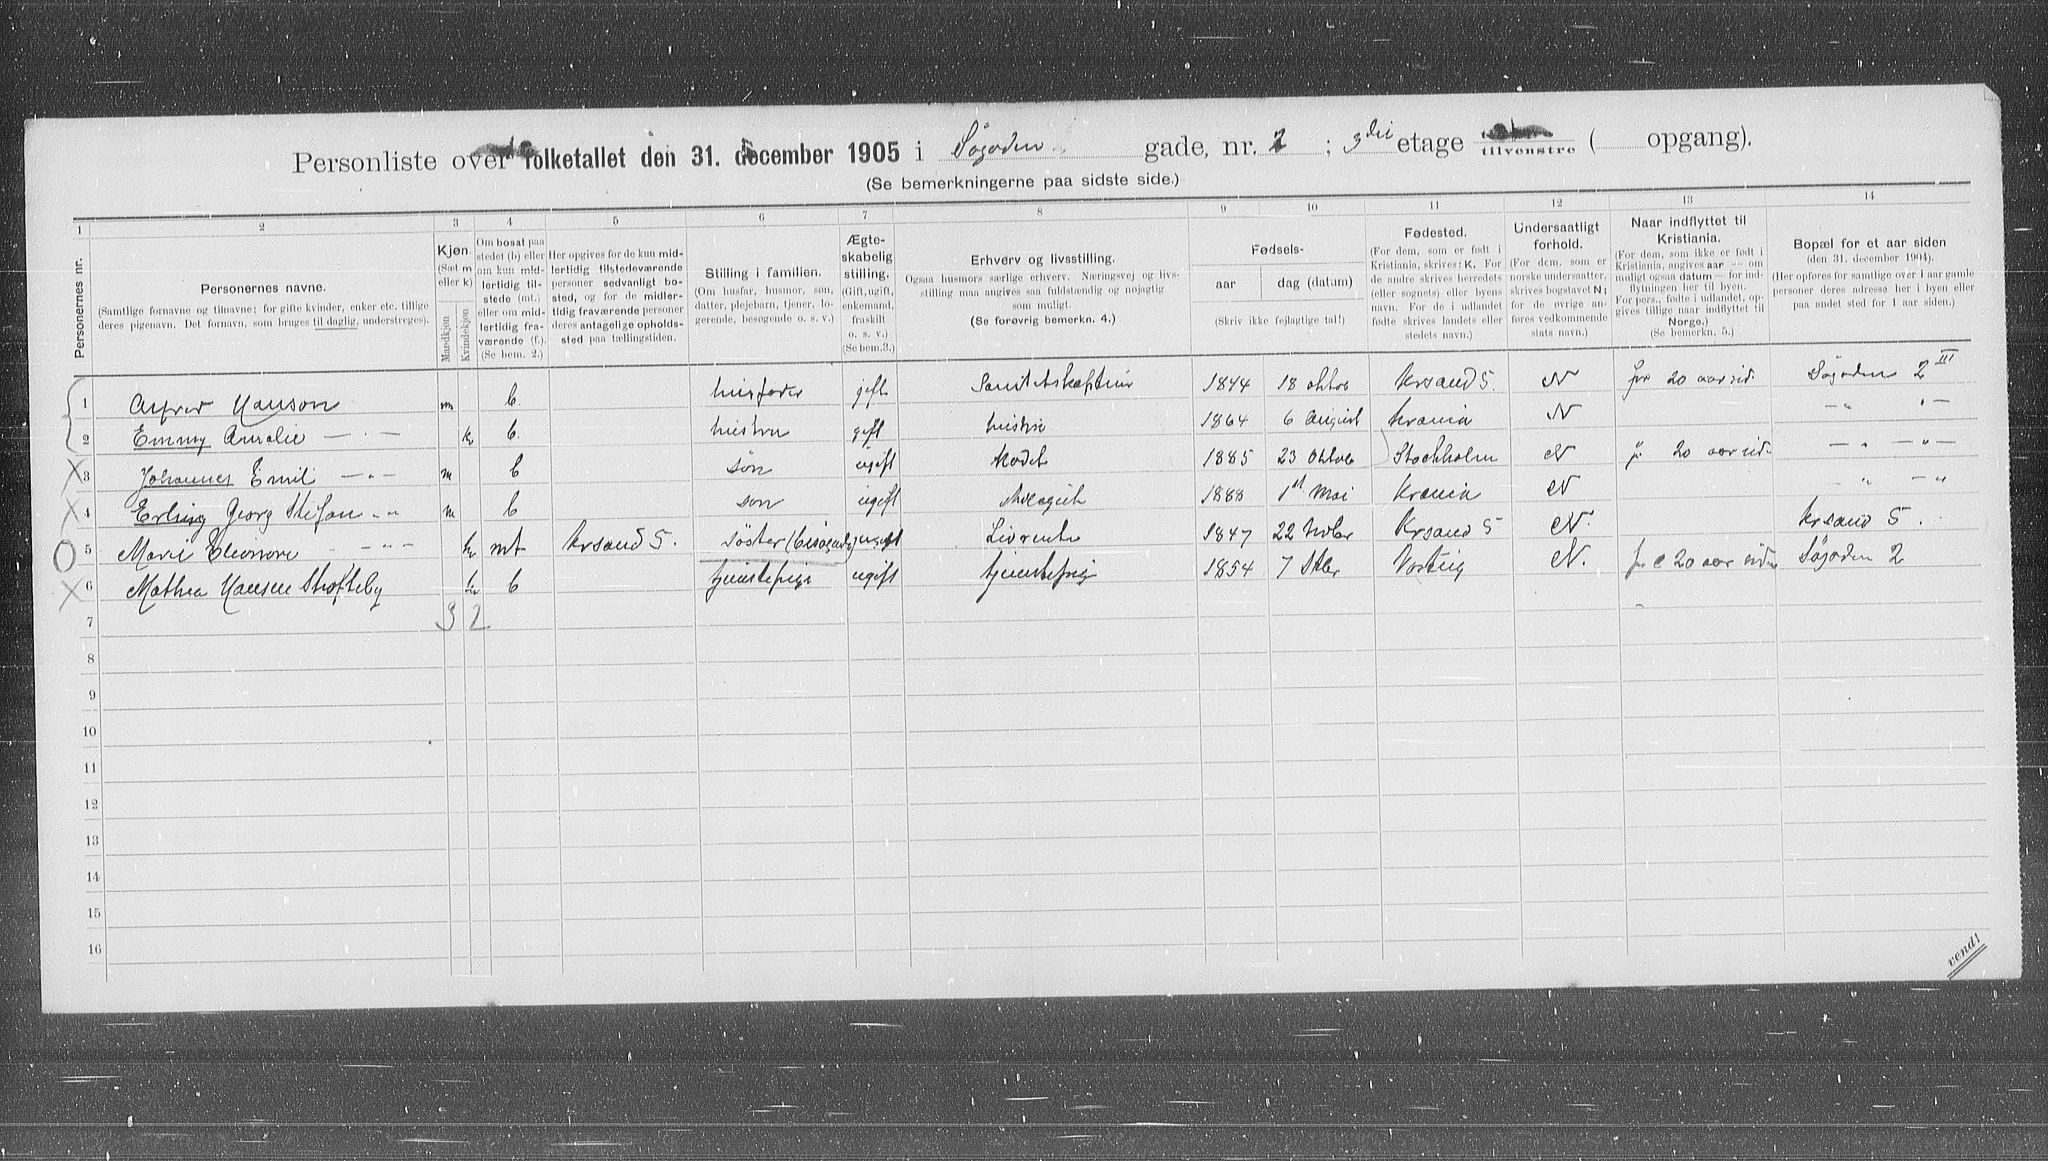 Personliste over folketallet den 31. december 1905 i Søgaden gade, nr. 2 ; 3die etage tilvenstre ( opgang).
(Se bemerkningerne paa sidste side.)
1 2 3 4 5 6 7 8 9 10 11 12 13 14
Personernes nr.
Personernes navne.
(Samtlige fornavne og tilnavne; for gifte kvinder, enker etc. tillige deres pigenavn. Det fornavn, som bruges til daglig, understreges).
Kjøn.
(Sæt m eller k)
Mandkjøn
Kvindekjøn
Om bosat paa stedet (b) eller om kun midlertidig tilstede (mt.) eller om midlertidig fraværende (f.). (Se bem. 2.)
Her opgives for de kun midlertidig tilstedeværende personer sedvanligt bosted, og for de midlertidig fraværende personer deres antagelige opholdssted paa tællingstiden.
Stilling i familien.
(Om husfar, husmor, søn, datter, plejebarn, tjener, logerende, besøgende o. s. v.)
Ægteskabelig stilling.
(Gift, ugift, enkemand, fraskilt o. s. v.)
(Se bem. 3.)
Erhverv og livsstilling.
Ogsaa husmors særlige erhverv. Næringsvej og livsstilling maa angives saa fuldstændig og nøjagtig som muligt.
(Se forøvrig bemerkn. 4.)
Fødsels-
aar
dag (datum)
(Skriv ikke fejlagtige tal!)
Fødested.
(For dem, som er født i Kristiania, skrives: K. For de andre skrives herredets (eller sognets) eller byens navn. For de i udlandet fødte skrives landets eller stedets navn.)
Undersaatligt forhold.
(For dem, som er norske undersaatter, skrives bogstavet N; for de øvrige anføres vedkommende slats navn.)
Naar indflyttet til Kristiania.
(For dem, som ikke er født i Kristiania, angives aar — om muligt ogsaa datum — for indflytningen her til byen. For pers., fødte i udlandet, opgives tillige naar indflyttet til Norge.)
(Se bemerkn. 5.)
Bopæl for et aar siden
(den 31. december 1904).
(Her opføres for samtlige over 1 aar gamle personer deres adresse her i byen eller paa andet sted for 1 aar siden.)
1 Alfred Hanson m b. husfader gift Sanitetskaptein 1844 18 oktob Krsand S. N for 20 aar sid. Søgaden 2 III
2 Emmy Amalie — " — k b. hustru gift hustru 1864 6 August Krania N — " " —
3 Johannes Emil — " — m b søn ugift Kadet 1885 23 Oktob Stockholm N f. 20 aar sid. — " — " —
4 Erling Georg Stefan " " m b søn ugift 1888 1st Mai Krania N — " — "
5 Marie Eleonore — " — " k mt Krsand S. søster (besøgende) ugift Livrente 1847 22 Novbr Krsand S N. Krsand S.
6 Mathea Hansen k b tjenestepige ugift tjenestepige 1854 7 N. for c 20 aar siden Søgaden 2
7 3 2
8
9
10
11
12
13
14
15
16
vend!